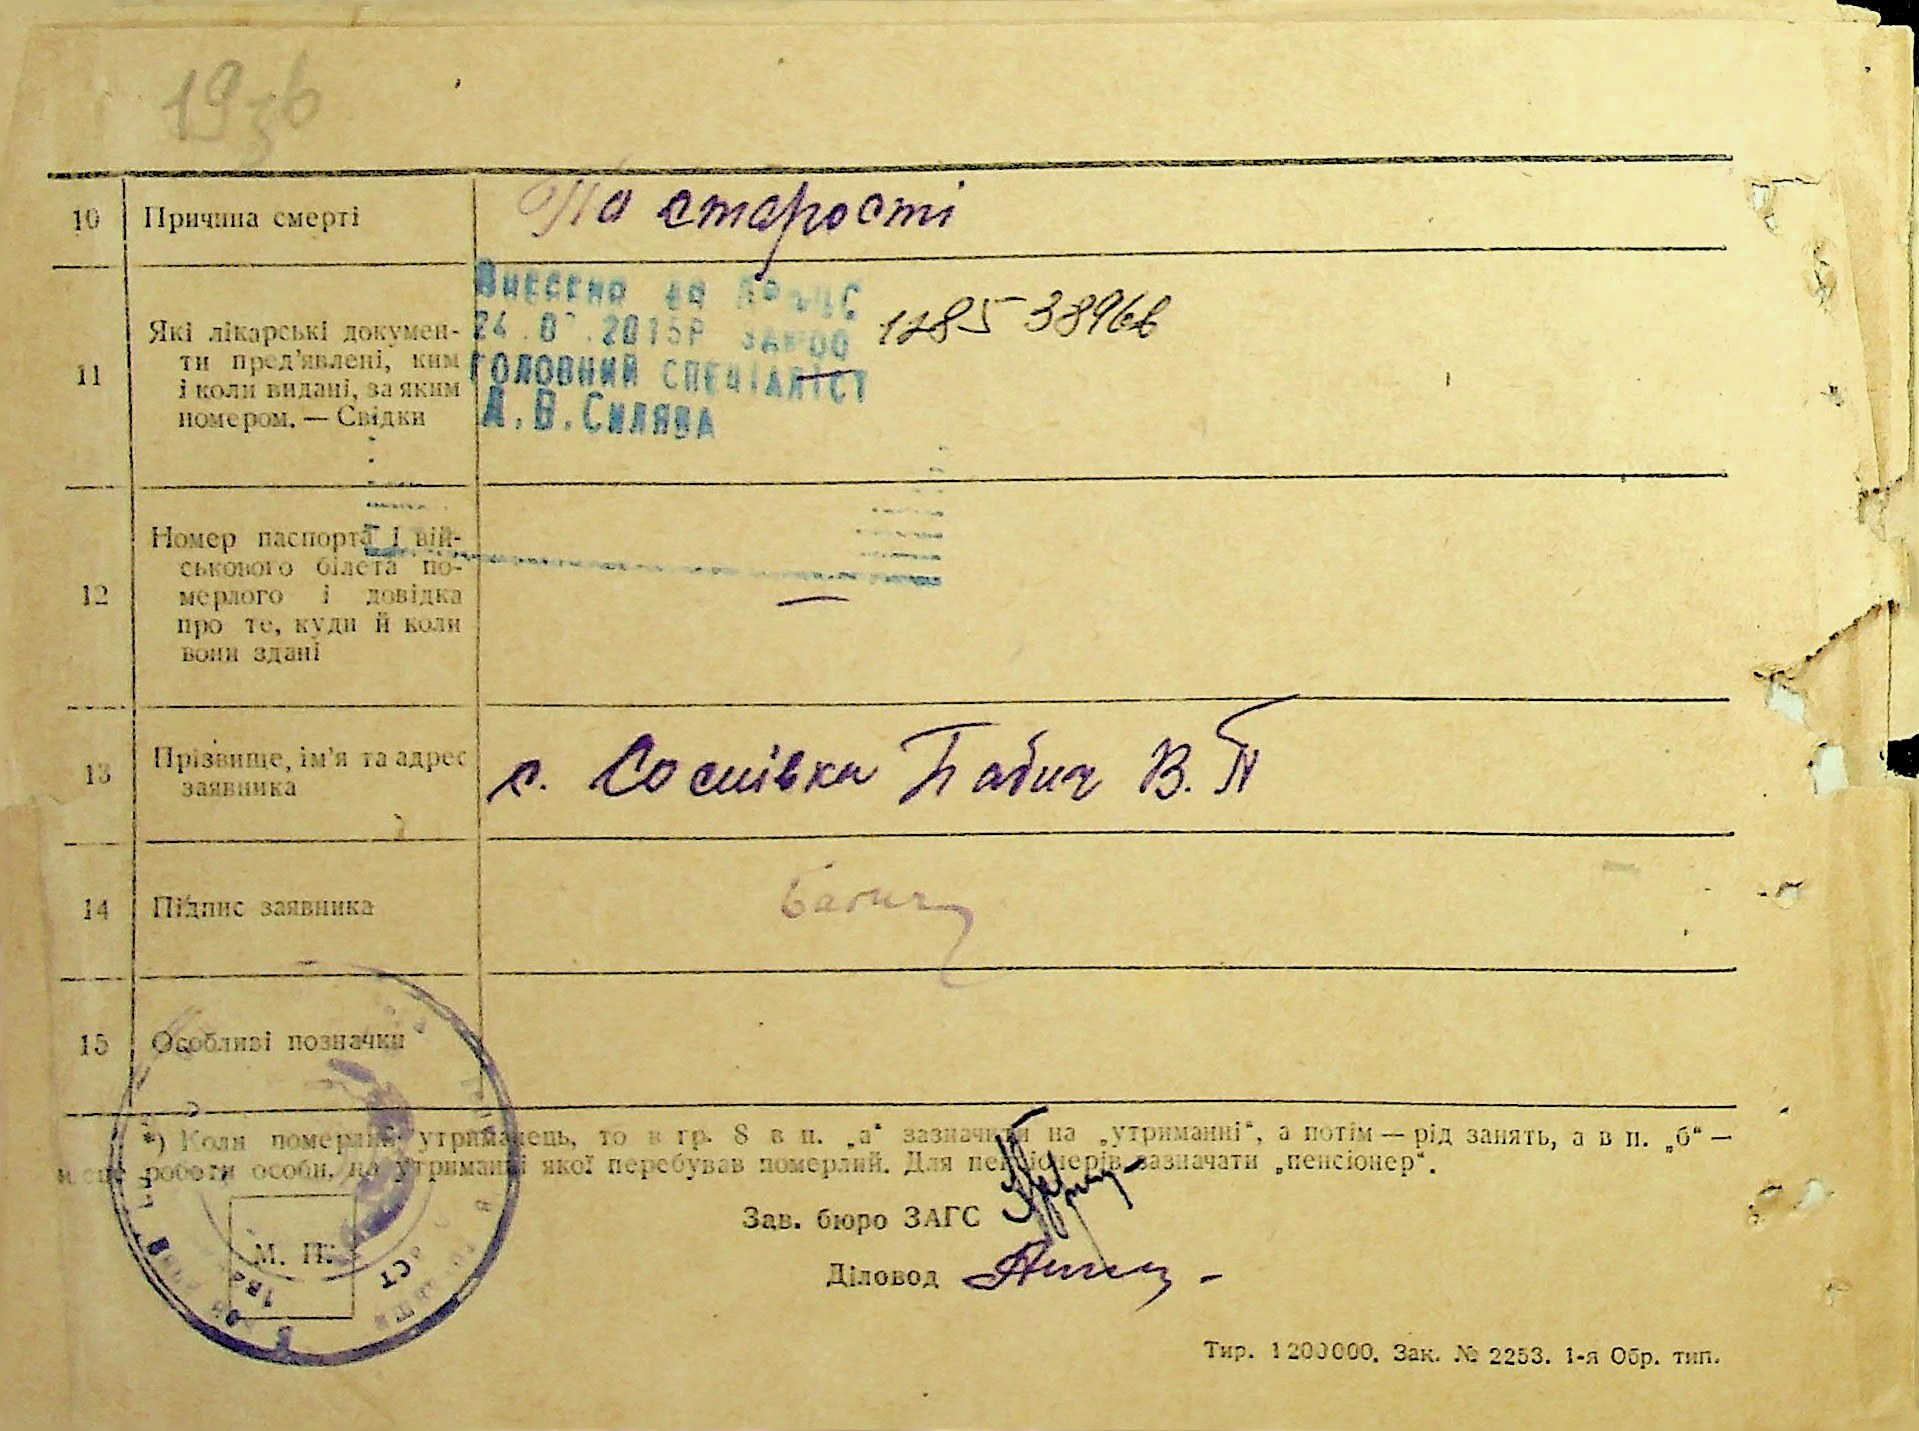 1936
10 Причина смерті По старості
Внесено до
24.0 .2015р
11 Які лікарські докумен-
ти пред'явлені, ким
і коли видані, за яким
номером. — Свідки
ГОЛОВНИЙ СПЕЦІАЛІСТ
А.В.Силява
12 Номер паспорта і вій-
ськового білета по-
мерлого і довідка
про те, куди й коли
вони здані
—
13 Прізвище, ім'я та адрес
заявника
с. Соснівка Бабич В. П
14 Підпис заявника Бабич
15 Особливі позначки
*) Коли померлий утриманець, то в гр. 8 в п. „а“ зазначити на „утриманні“, а потім — рід занять, а в п. „б“ —
місце роботи особи, на утриманні якої перебував померлий. Для пенсіонерів зазначати „пенсіонер“.
Зав. бюро ЗАГС
М. П.
Діловод
Тир. 1200000. Зак. № 2253. 1-я Обр. тип.